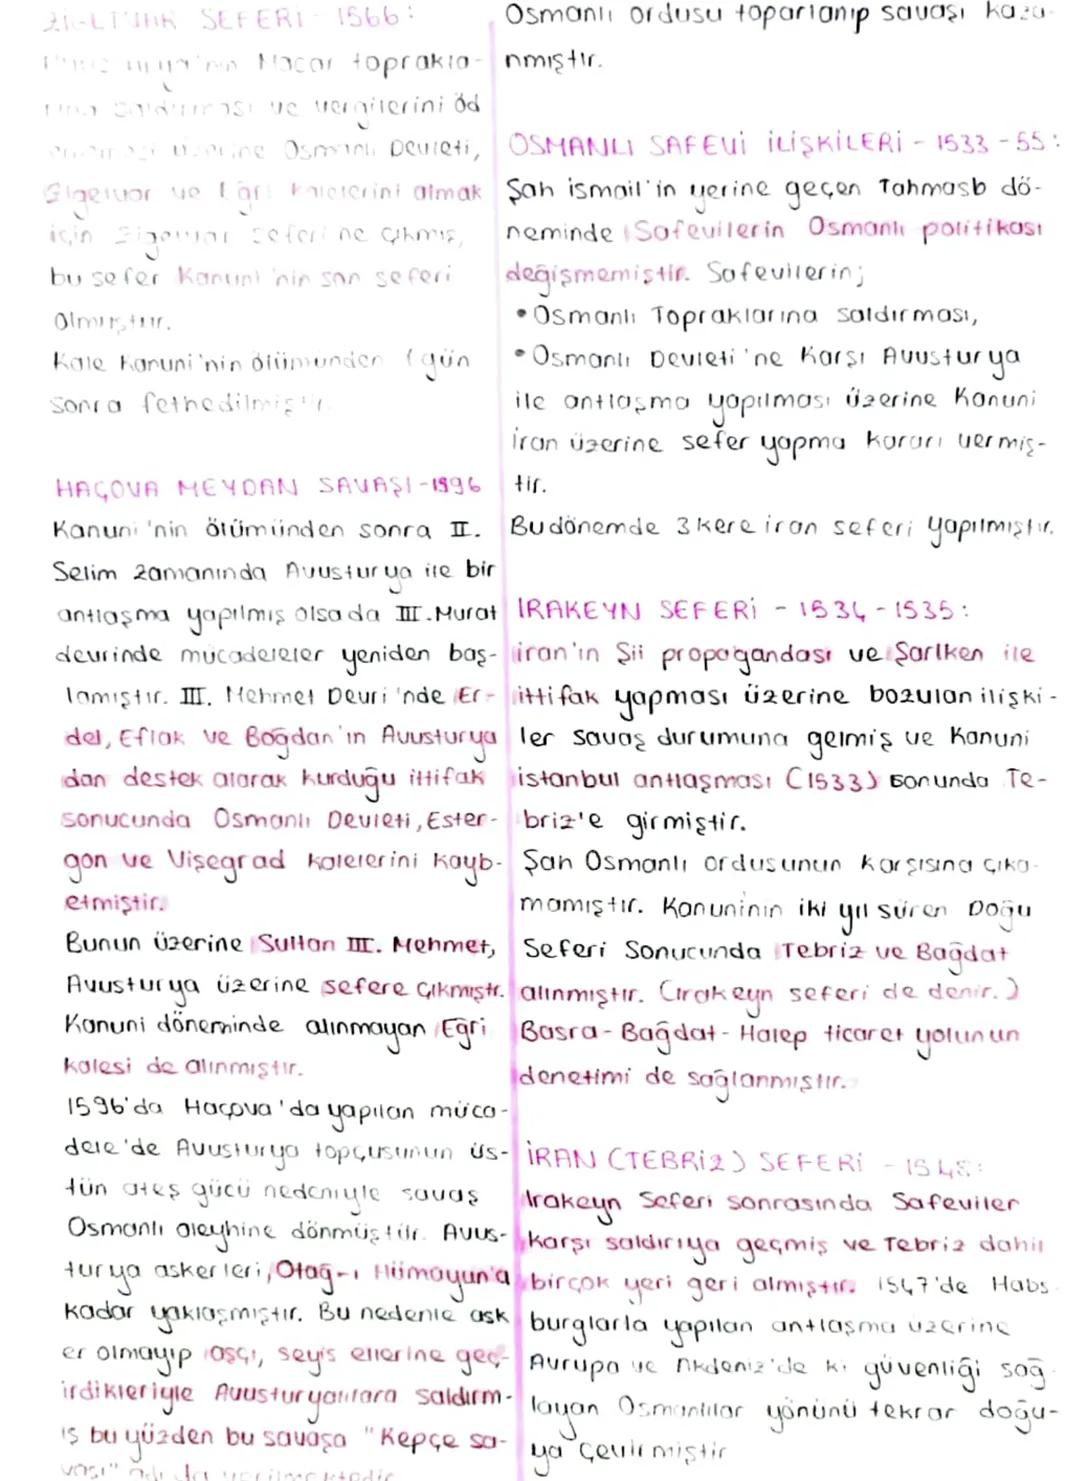 SEFERİ - 1566:
Macar toprakla-
ve vergilerini öd
üzerine Osmanlı Devleti,
Zigetvar ve Eğri kalelerini almak
için Zigetvar seferi'ne çıkmış,
bu sefer Kanuni'nin son seferi
olmuştur.
Kale Kanuni'nin ölümünden 1 gün
sonra fethedilmiştir.
HAÇOVA MEYDAN SAVAŞI-1596
Kanuni'nin ölümünden sonra II.
Selim zamanında Avusturya ile bir
antlaşma yapılmış olsada III. Murat
devrinde mücadeleler yeniden baş-
lamıştır. III. Mehmet Devri'nde Er-
del, Eflak ve Boğdan'ın Avusturya
dan destek alarak kurduğu ittifak
sonucunda Osmanlı Devleti, Ester-
gon ve Vişegrad kalelerini kayb-
etmiştir.
Bunun üzerine Sultan III. Mehmet,
Avusturya üzerine sefere çıkmıştr.
Kanuni döneminde alınmayan Eğri
kalesi de alınmıştır.
1596'da Haçova'da yapılan müca-
dele'de Avusturya topçusunun üs-
tün ateş gücü nedeniyle savaş
Osmanlı aleyhine dönmüştür. Avus-
turya askerleri, Otağ-ı Hümayun'a
kadar yaklaşmıştır. Bu nedenle ask
er olmayıp aşçı, seyis ellerine geç-
irdikleriyle Avusturyalılara saldırm-
ış bu yüzden bu savaşa "Kepçe sa-
vaşı" adı da verilmektedir
Osmanlı ordusu toparlanıp savaşı kaza-
nmıştır.
OSMANLI SAFEVİ İLİŞKİLERİ - 1533-55:
Şah ismail'in yerine geçen Tahmasb dö-
neminde Safevilerin Osmanlı politikası
değişmemiştir. Safevilerin;
• Osmanlı Topraklarına saldırması,
• Osmanlı Devleti'ne Karşı Avusturya
ile antlaşma yapılması üzerine Kanuni
İran üzerine sefer yapma kararı vermiş-
tir.
Bu dönemde 3 kere iran seferi yapılmıştır.
IRAKEYN SEFERİ - 1534-1535:
iran'ın Şii propagandası ve Şarlken ile
ittifak yapması üzerine bozulan ilişki-
ler savaş durumuna gelmiş ve Kanuni
istanbul antlaşması (1533) sonunda Te-
briz'e girmiştir.
Şah Osmanlı ordusunun karşısına çıka-
mamıştır. Kanuninin iki yıl süren Doğu
Seferi Sonucunda Tebriz ve Bağdat
alınmıştır. (ırakeyn seferi de denir.)
Basra-Bağdat-Halep ticaret yolunun
denetimi de sağlanmıştır.
İRAN (TEBRİZ) SEFERİ - 1548:
Irakeyn Seferi sonrasında Safeviler
karşı saldırıya geçmiş ve Tebriz dahil
birçok yeri geri almıştır. 1547'de Habs-
burglarla yapılan antlaşma üzerine
Avrupa ve Akdeniz'de ki güvenliği sağ-
layan Osmanlılar yönünü tekrar doğu-
ya çevirmiştir